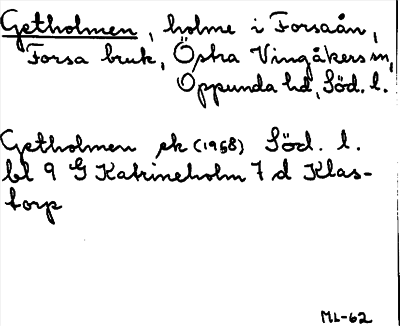 Getholmen, holme i Forsaån,
Forsa bruk, Östra Vingåkers sn,
Oppunda hd, Söd. l.
Getholmen ek (1958) Söd. l.
bl 9 G Katrineholm 7 d Klas-
torp
ML-62